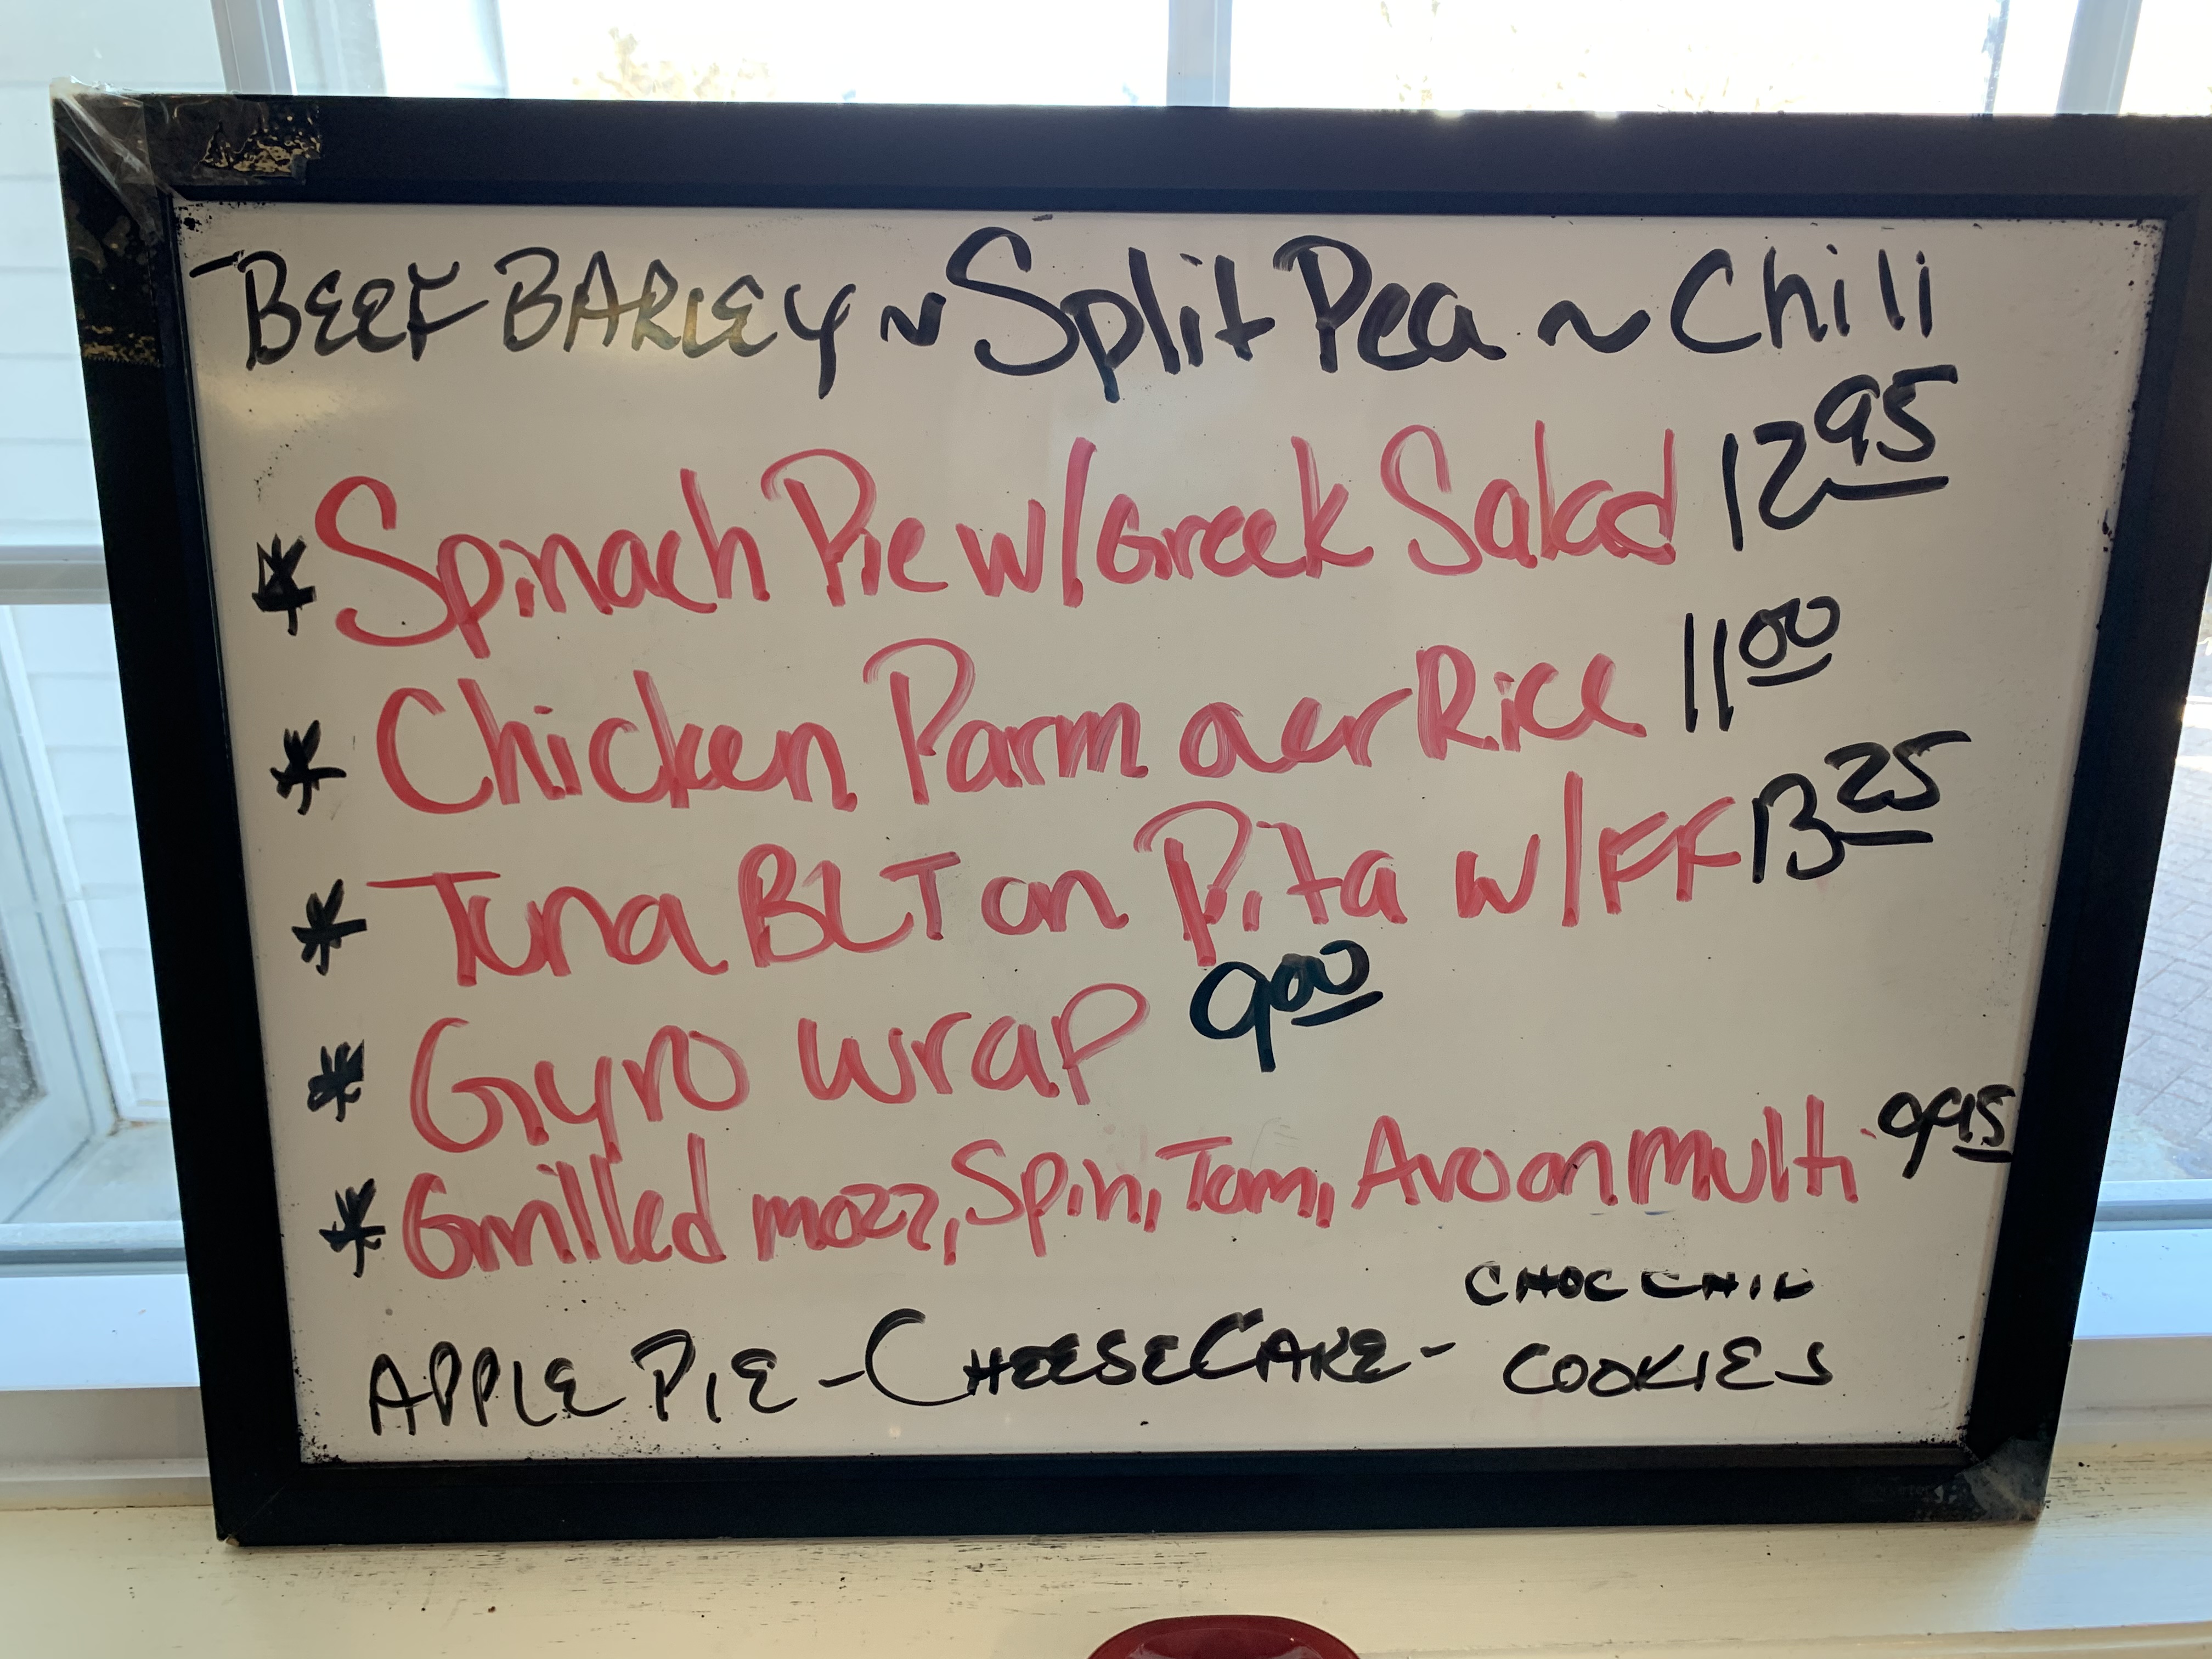 BEEF BARLEY ~ Split Pea ~ Chili
* Spinach Pie w/Greek Salad 12 95
* Chicken Parm over Rice 11 00
* Tuna BLT on Pita w/FF 13 25
* Gyro wrap 9 00
* Grilled mozz, Spin, Tom, Avo on multi 9 95
CHOC CHIP
APPLE PIE - CHEESECAKE - COOKIES